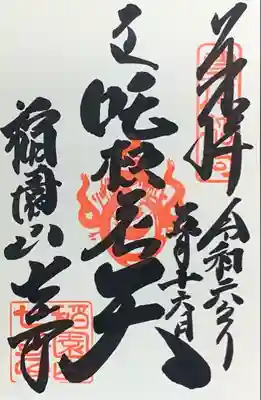 奉拝
令和六年
月十六日
吒枳尼天
稲園山
七寺